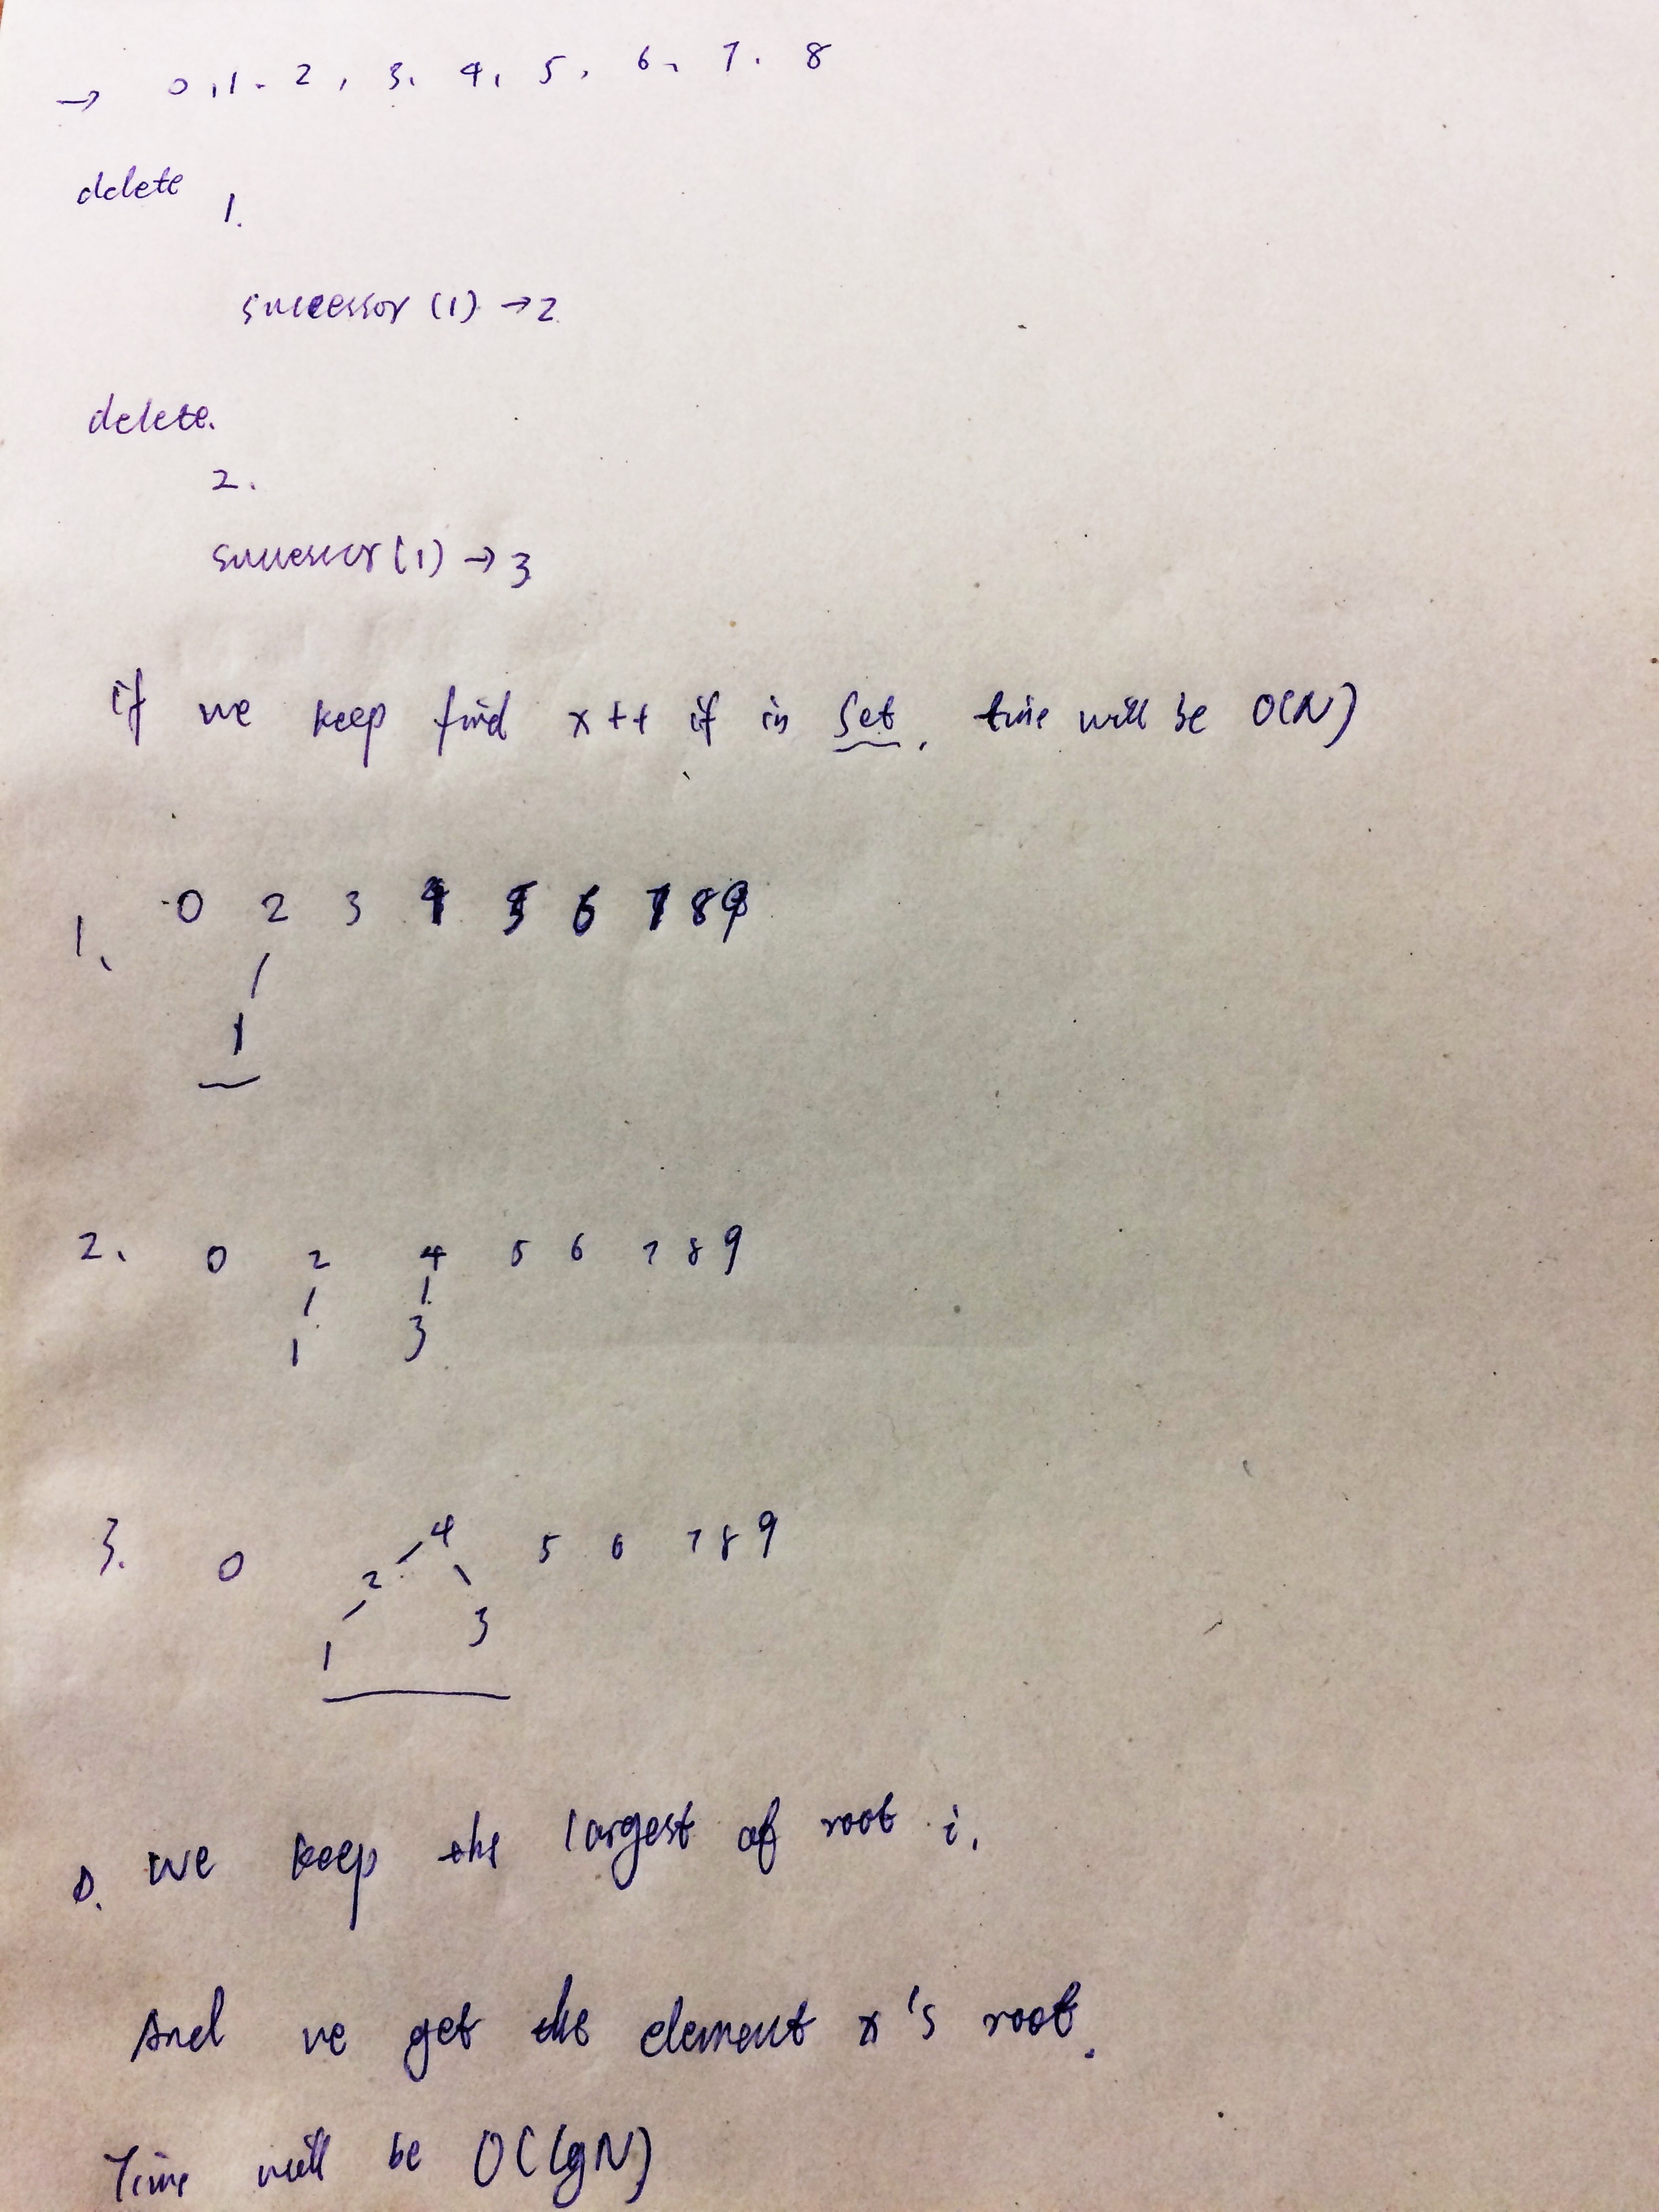 → 0,1. 2, 3. 4, 5, 6, 7. 8
delete
1.
successor (1) → 2
delete.
2.
successor (1) → 3
if we keep find x++ if in Set, time will be O(N)
1、 0 2 3 4 5 6 7 8 9
1
2、 0 2 4 5 6 7 8 9
1 3
3. 0 4 5 6 7 8 9
2
3
1
we keep the largest of root i.
And we get the element x's root.
Time will be O(lgN)